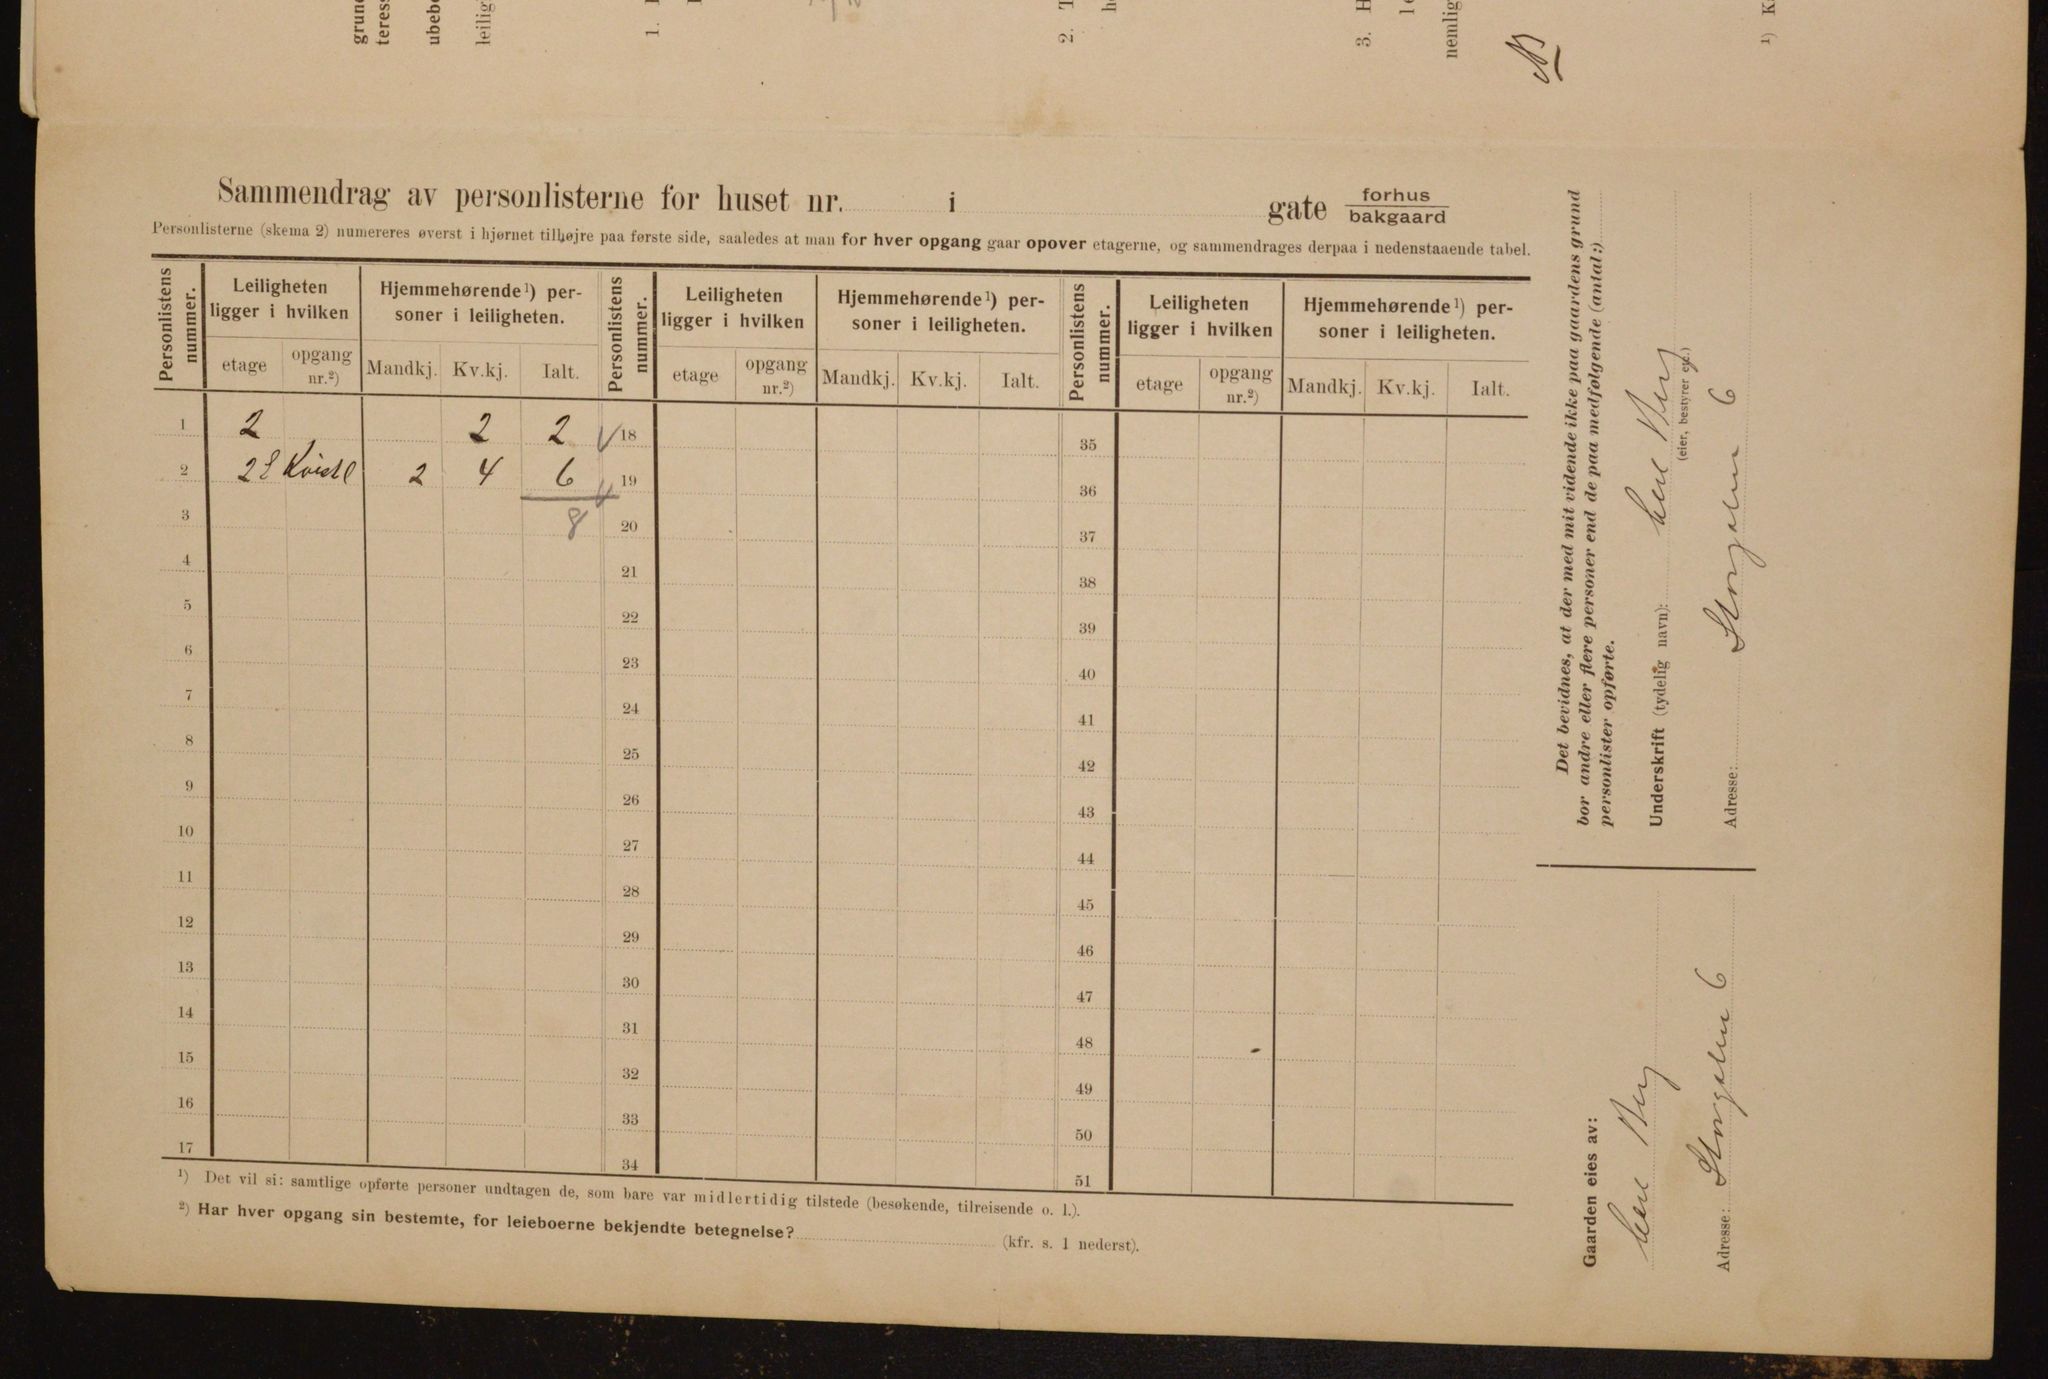 grund
teress
ubebo
leilig
1.
2. T
h
3. H
le
nemlig
¹) K
N
Sammendrag av personlisterne for huset nr. i gate forhus
bakgaard
Personlisterne (skema 2) numereres øverst i hjørnet tilhøjre paa første side, saaledes at man for hver opgang gaar opover etagerne, og sammendrages derpaa i nedenstaaende tabel.
Personlistens nummer. Leiligheten ligger i hvilken Hjemmehørende¹) personer i leiligheten. Personlistens nummer. Leiligheten ligger i hvilken Hjemmehørende¹) personer i leiligheten. Personlistens nummer. Leiligheten ligger i hvilken Hjemmehørende¹) personer i leiligheten.
etage opgang nr.²) Mandkj. Kv.kj. Ialt. etage opgang nr.²) Mandkj. Kv.kj. Ialt. etage opgang nr.²) Mandkj. Kv.kj. Ialt.
1 2 2 2 18 35
2 2 2 4 6 19 36
3 8 20 37
4 21 38
5 22 39
6 23 40
7 24 41
8 25 42
9 26 43
10 27 44
11 28 45
12 29 46
13 30 47
14 31 48
15 32 49
16 33 50
17 34 51
¹) Det vil si: samtlige opførte personer undtagen de, som bare var midlertidig tilstede (besøkende, tilreisende o. l.).
²) Har hver opgang sin bestemte, for leieboerne bekjendte betegnelse? (kfr. s. 1 nederst).
Det bevidnes, at der med mit vidende ikke paa gaardens grund
bor andre eller flere personer end de paa medfølgende (antal:)
personlister opførte.
Underskrift (tydelig navn): Berg
(eier, bestyrer etc.)
Adresse: Storgaten 6
Gaarden eies av:
Berg
Adresse: Storgaten 6